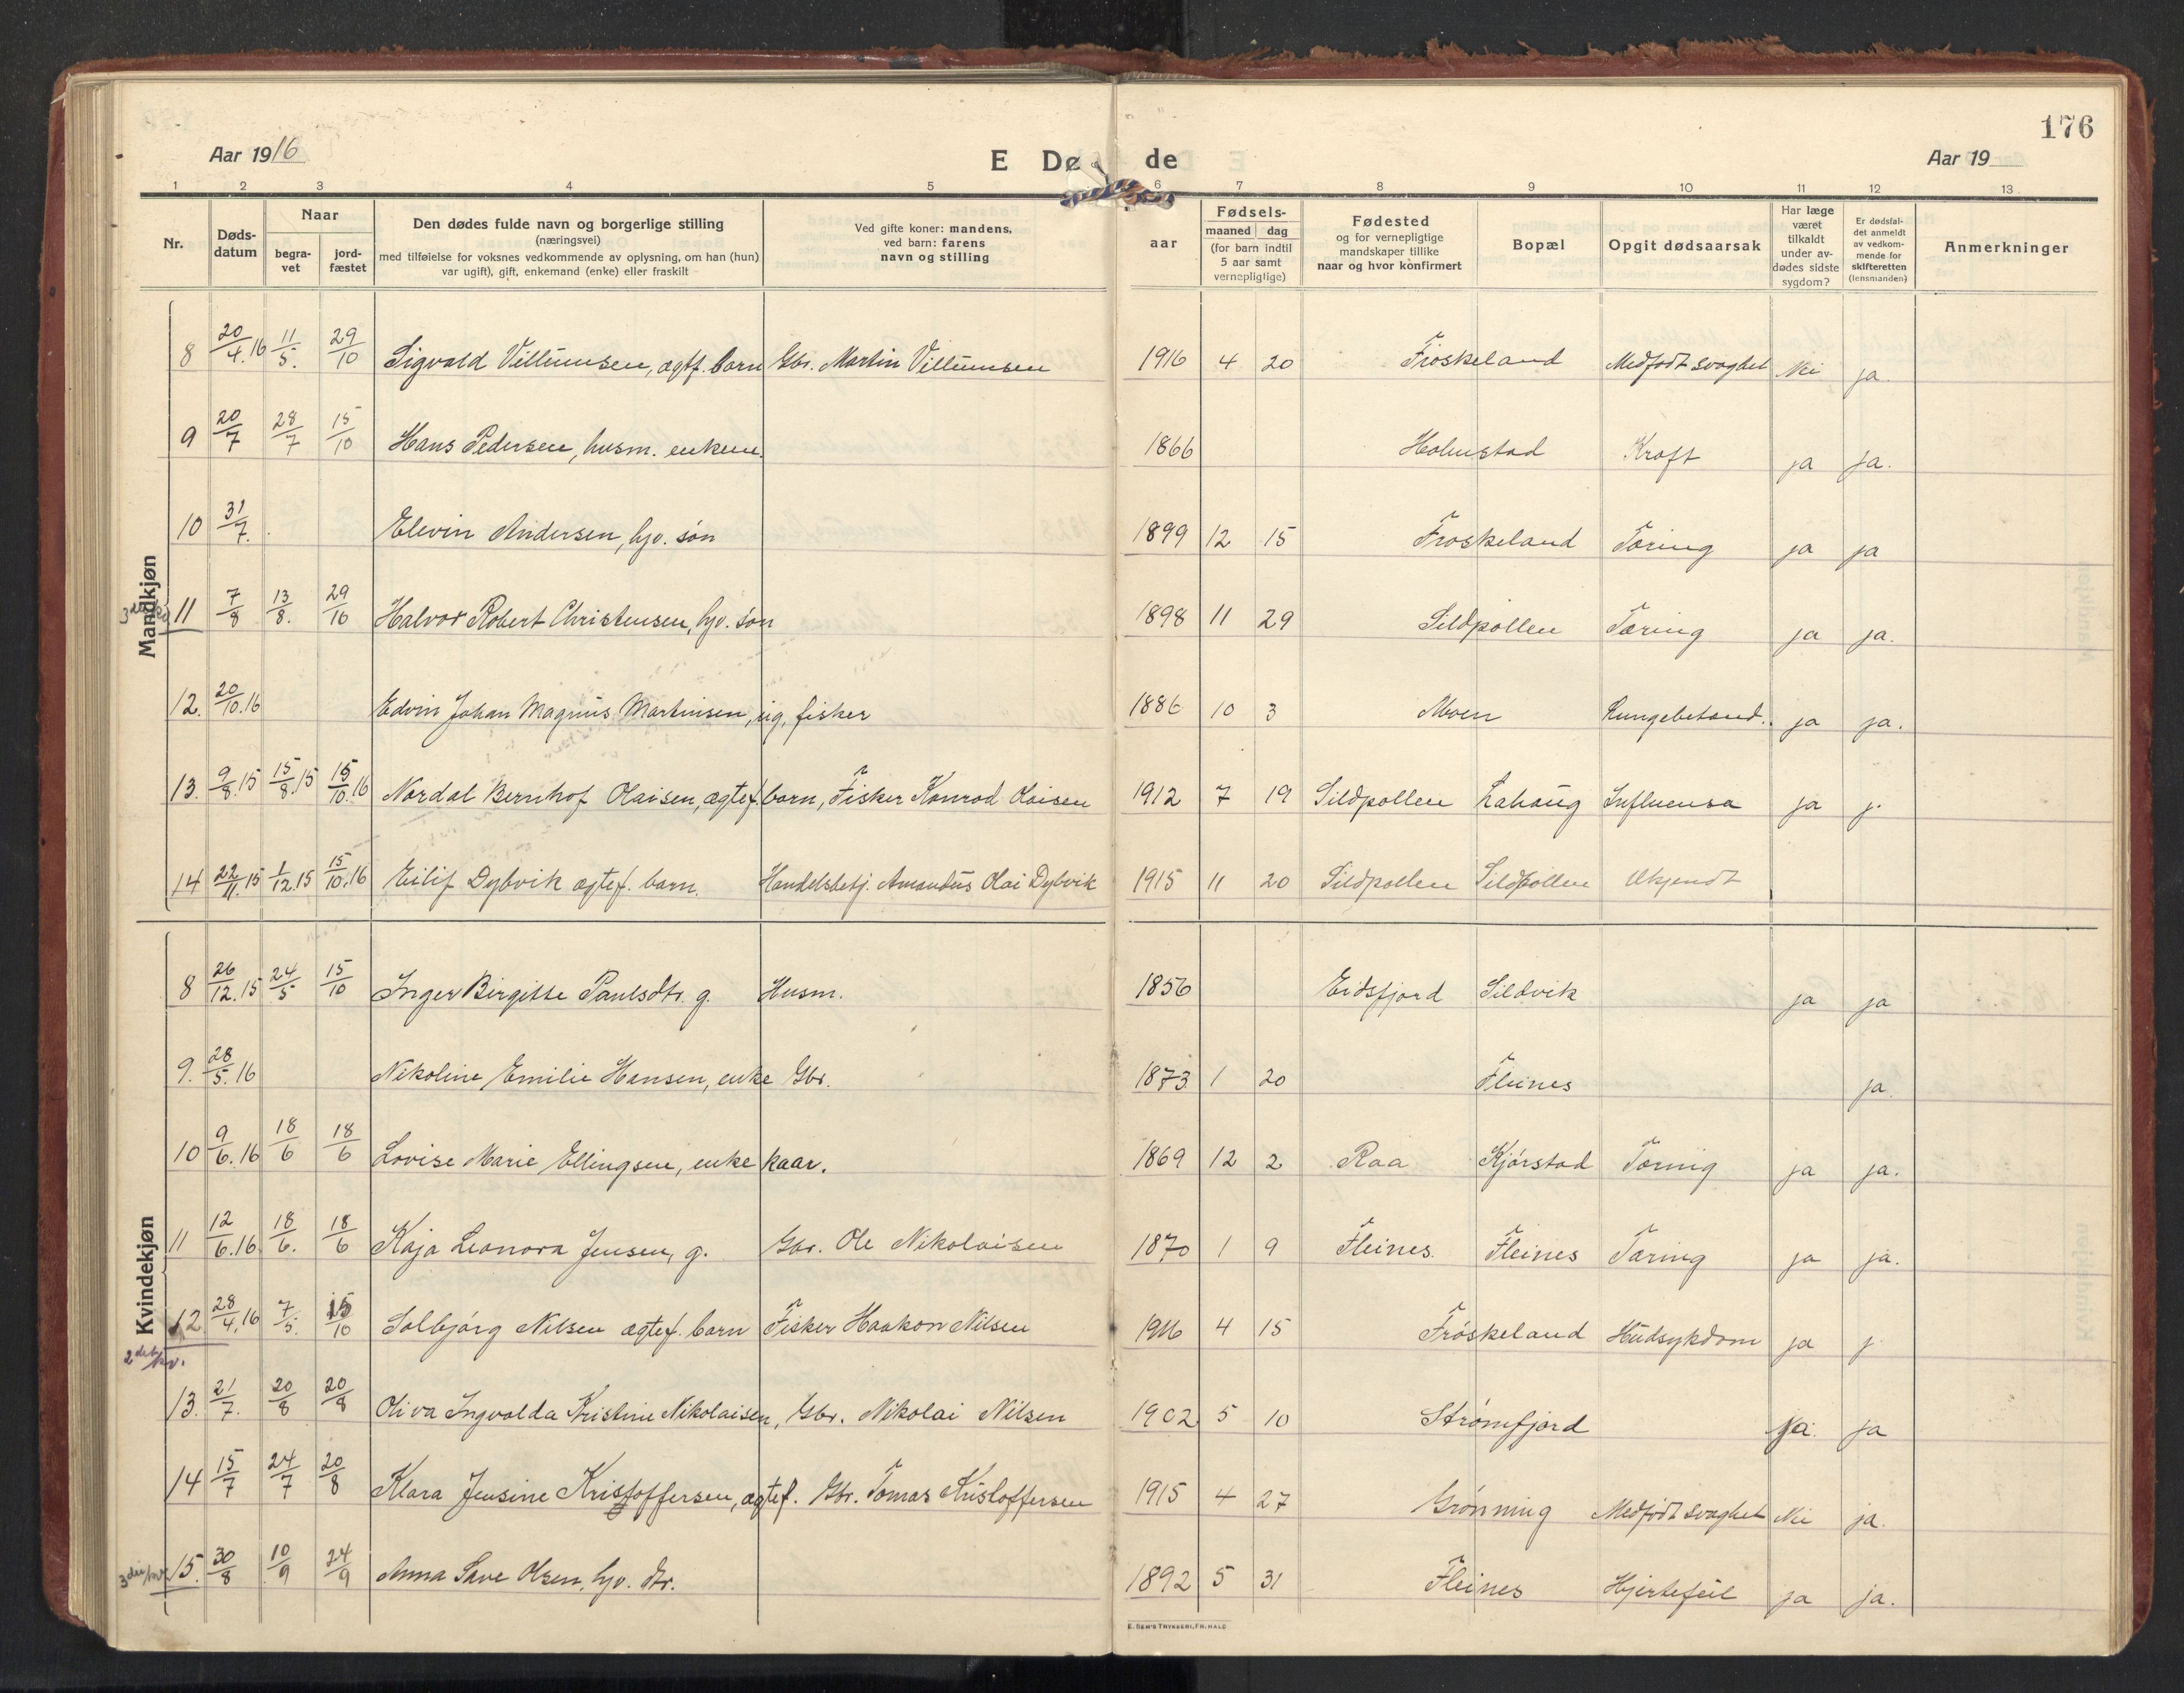 176
Aar 1916
E Dø de
Aar 19
1 2 3 4 5 6 7 8 9 10 11 12 13
Nr.
Døds-datum
Naar
begra-vet
jord-fæstet
Den dødes fulde navn og borgerlige stilling
(næringsvei)
med tilføielse for voksnes vedkommende av oplysning, om han (hun)
var ugift), gift, enkemand (enke) eller fraskilt
Ved gifte koner: mandens,
ved barn: farens
navn og stilling
aar
Fødsels-
maaned dag
(for barn indtil
5 aar samt
vernepligtige)
Fødested
og for vernepligtige
mandskaper tillike
naar og hvor konfirmert
Bopæl
Opgit dødsaarsak
Har læge
været
tilkaldt
under av-
dødes sidste
sygdom?
Er dødsfal-
det anmeldt
av vedkom-
mende for
skifteretten
(lensmanden)
Anmerkninger
Mandkjøn
8 20/4.16 11/5. 29/10 Sigvald Villumsen, ægtf. barn Gbr. Martin Villumsen 1916 4 20 Frøskeland Medfødt svaghet Nei ja.
9 20/7 28/7 15/10 Hans Pedersen, husm. enkem. 1866 Holmstad Kræft ja ja.
10 31/7. Elevin Andersen, hjv. søn 1899 12 15 Frøskeland Tæring ja ja
11 7/8 13/8. 29/10 Halvor Robert Christensen, hjv. søn 1898 11 29 Sildpollen Tæring ja ja.
12. 20/10.16 Edvin Johan Magnus Martinsen, ug, fisker 1886 10 3 Moen Lungebetænd. ja ja.
13. 9/8.15 15/8.15 15/10.16 Nordal Bernhof Olaisen, ægtef. barn, Fisker Konrad Olaisen 1912 7 19 Sildpollen Lahaug Influensa ja j.
14 22/11.15 1/12.15 15/10.16 Eilif Dybvik ægtef. barn. Handelsbetj. Amandus Olai Dybvik 1915 11 20 Sildpollen Sildpollen Ukjendt
Kvindekjøn
8 26/12.15 24/5 15/10 Inger Birgitte Paulsdtr. g. Husm. 1856 Eidsfjord Sildvik ja ja
9. 28/5.16 Nikoline Emilie Hansen, enke Gbr. 1873 1 20 Fleines ja.
10 9/6.16 18/6 18/6 Lovise Marie Ellingsen, enke kaar. 1869 12 2 Raa Kjørstad Tæring ja ja.
11 12/6.16 18/6. 18/6 Kaja Leonora Jensen, g. Gbr. Ole Nikolaisen 1870 1 9 Fleines. Fleines Tæring ja ja.
12 28/4.16 7/5. 15/10 Solbjørg Nilsen ægtef. barn Fisker Haakon Nilsen 1916 4 15 Frøskeland Hudsykdom ja j.
13. 21/7. 20/8 20/8 Oliva Ingvalda Kristine Nikolaisen, Gbr. Nikolai Nilsen 1902 5 10 Strømfjord ja
14 15/7 24/7 20/8 Klara Jensine Kristoffersen, ægtef. Gbr. Tomas Kristoffersen 1915 4 27 Grønning Medfødt svaghet Nei ja.
15. 30/8 10/9 24/9 Anna Olsen, hjv. dtr. 1892 5 31 Fleines Hjertefeil ja ja.
E. SEM'S TRYKKERI, FR.HALD